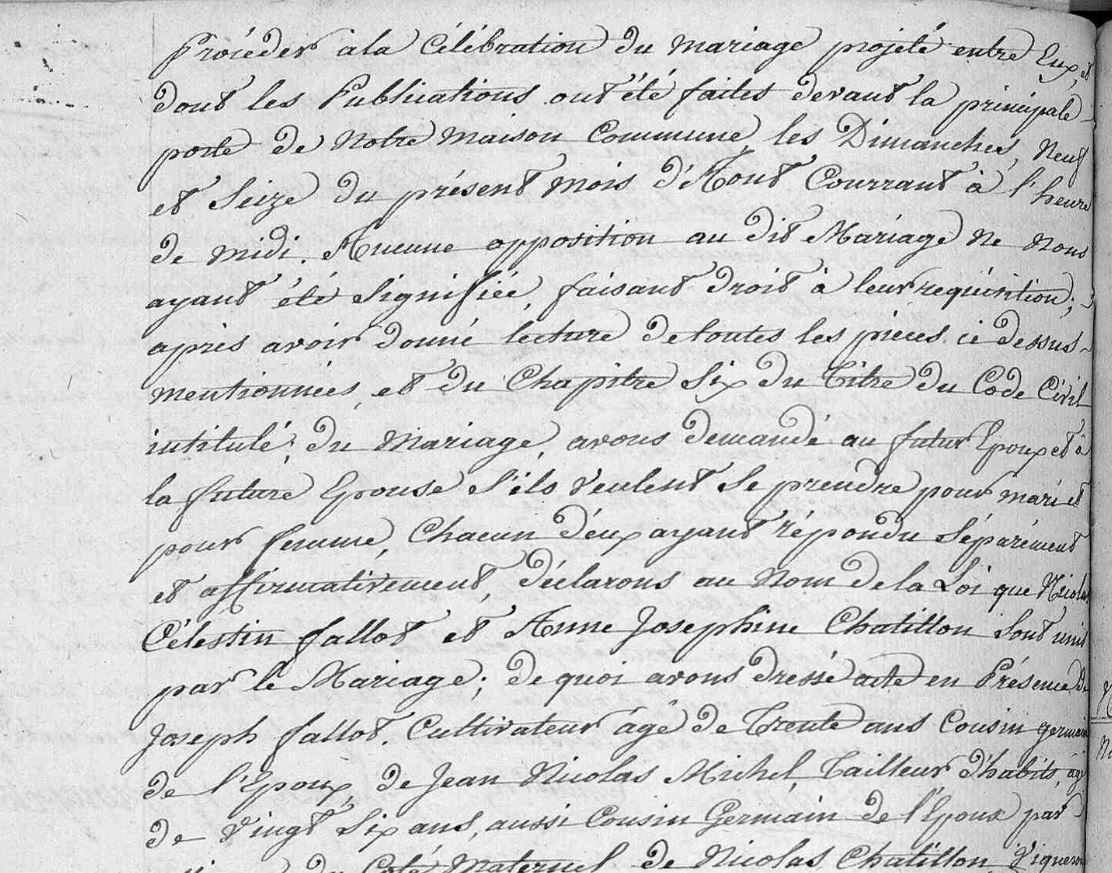 Procéder à la Célébration du mariage projeté entre Eux, et
dont les Publications ont été faites devant la principale
porte de Notre Maison Commune, les Dimanches, Neuf
et Seize du présent Mois d'Aout Courrant à l'heure
de midi. Aucune opposition au dit Mariage ne nous
ayant été Signifiée, faisant droit à leur requisition;
après avoir donné lecture de toutes les pièces ci dessus
mentionnées, et du Chapitre Six du Titre du Code Civil
intitulé; du Mariage, avons demandé au futur Epoux et à
la future Epouse S'ils Veulent Se prendre pour mari et
pour femme, Chacun d'eux ayant répondu Séparément
et affirmativement, déclarons au Nom de la Loi que Nicolas
Célestin fallot et Anne Josephine Chatillon Sont unis
par le Mariage; de quoi avons dressé acte en Présence de
Joseph fallot. Cultivateur âgé de Trente ans Cousin germain
de l'Epoux, de Jean Nicolas Michel Tailleur d'habits, agé
de Vingt Six ans, aussi Cousin Germain de l'Epoux par
du Coté Maternel de Nicolas Chatillon, Vigneron